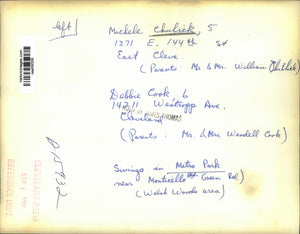 left
Michele Chulick, 5
1271 E. 144th St
East Cleve.
(Parents: Mr. & Mrs. William Chulick)
Debbie Cook 6
14211 Westropp Ave.
Cleveland
THOMAS
(Parents: Mr. & Mrs. Wendell Cook)
Swings in Metro Park
near Monticello & Green Rd.)
(Welsh Woods area)
CLEVELAND PRESS
SEP 4
REFERENCE DEPT.